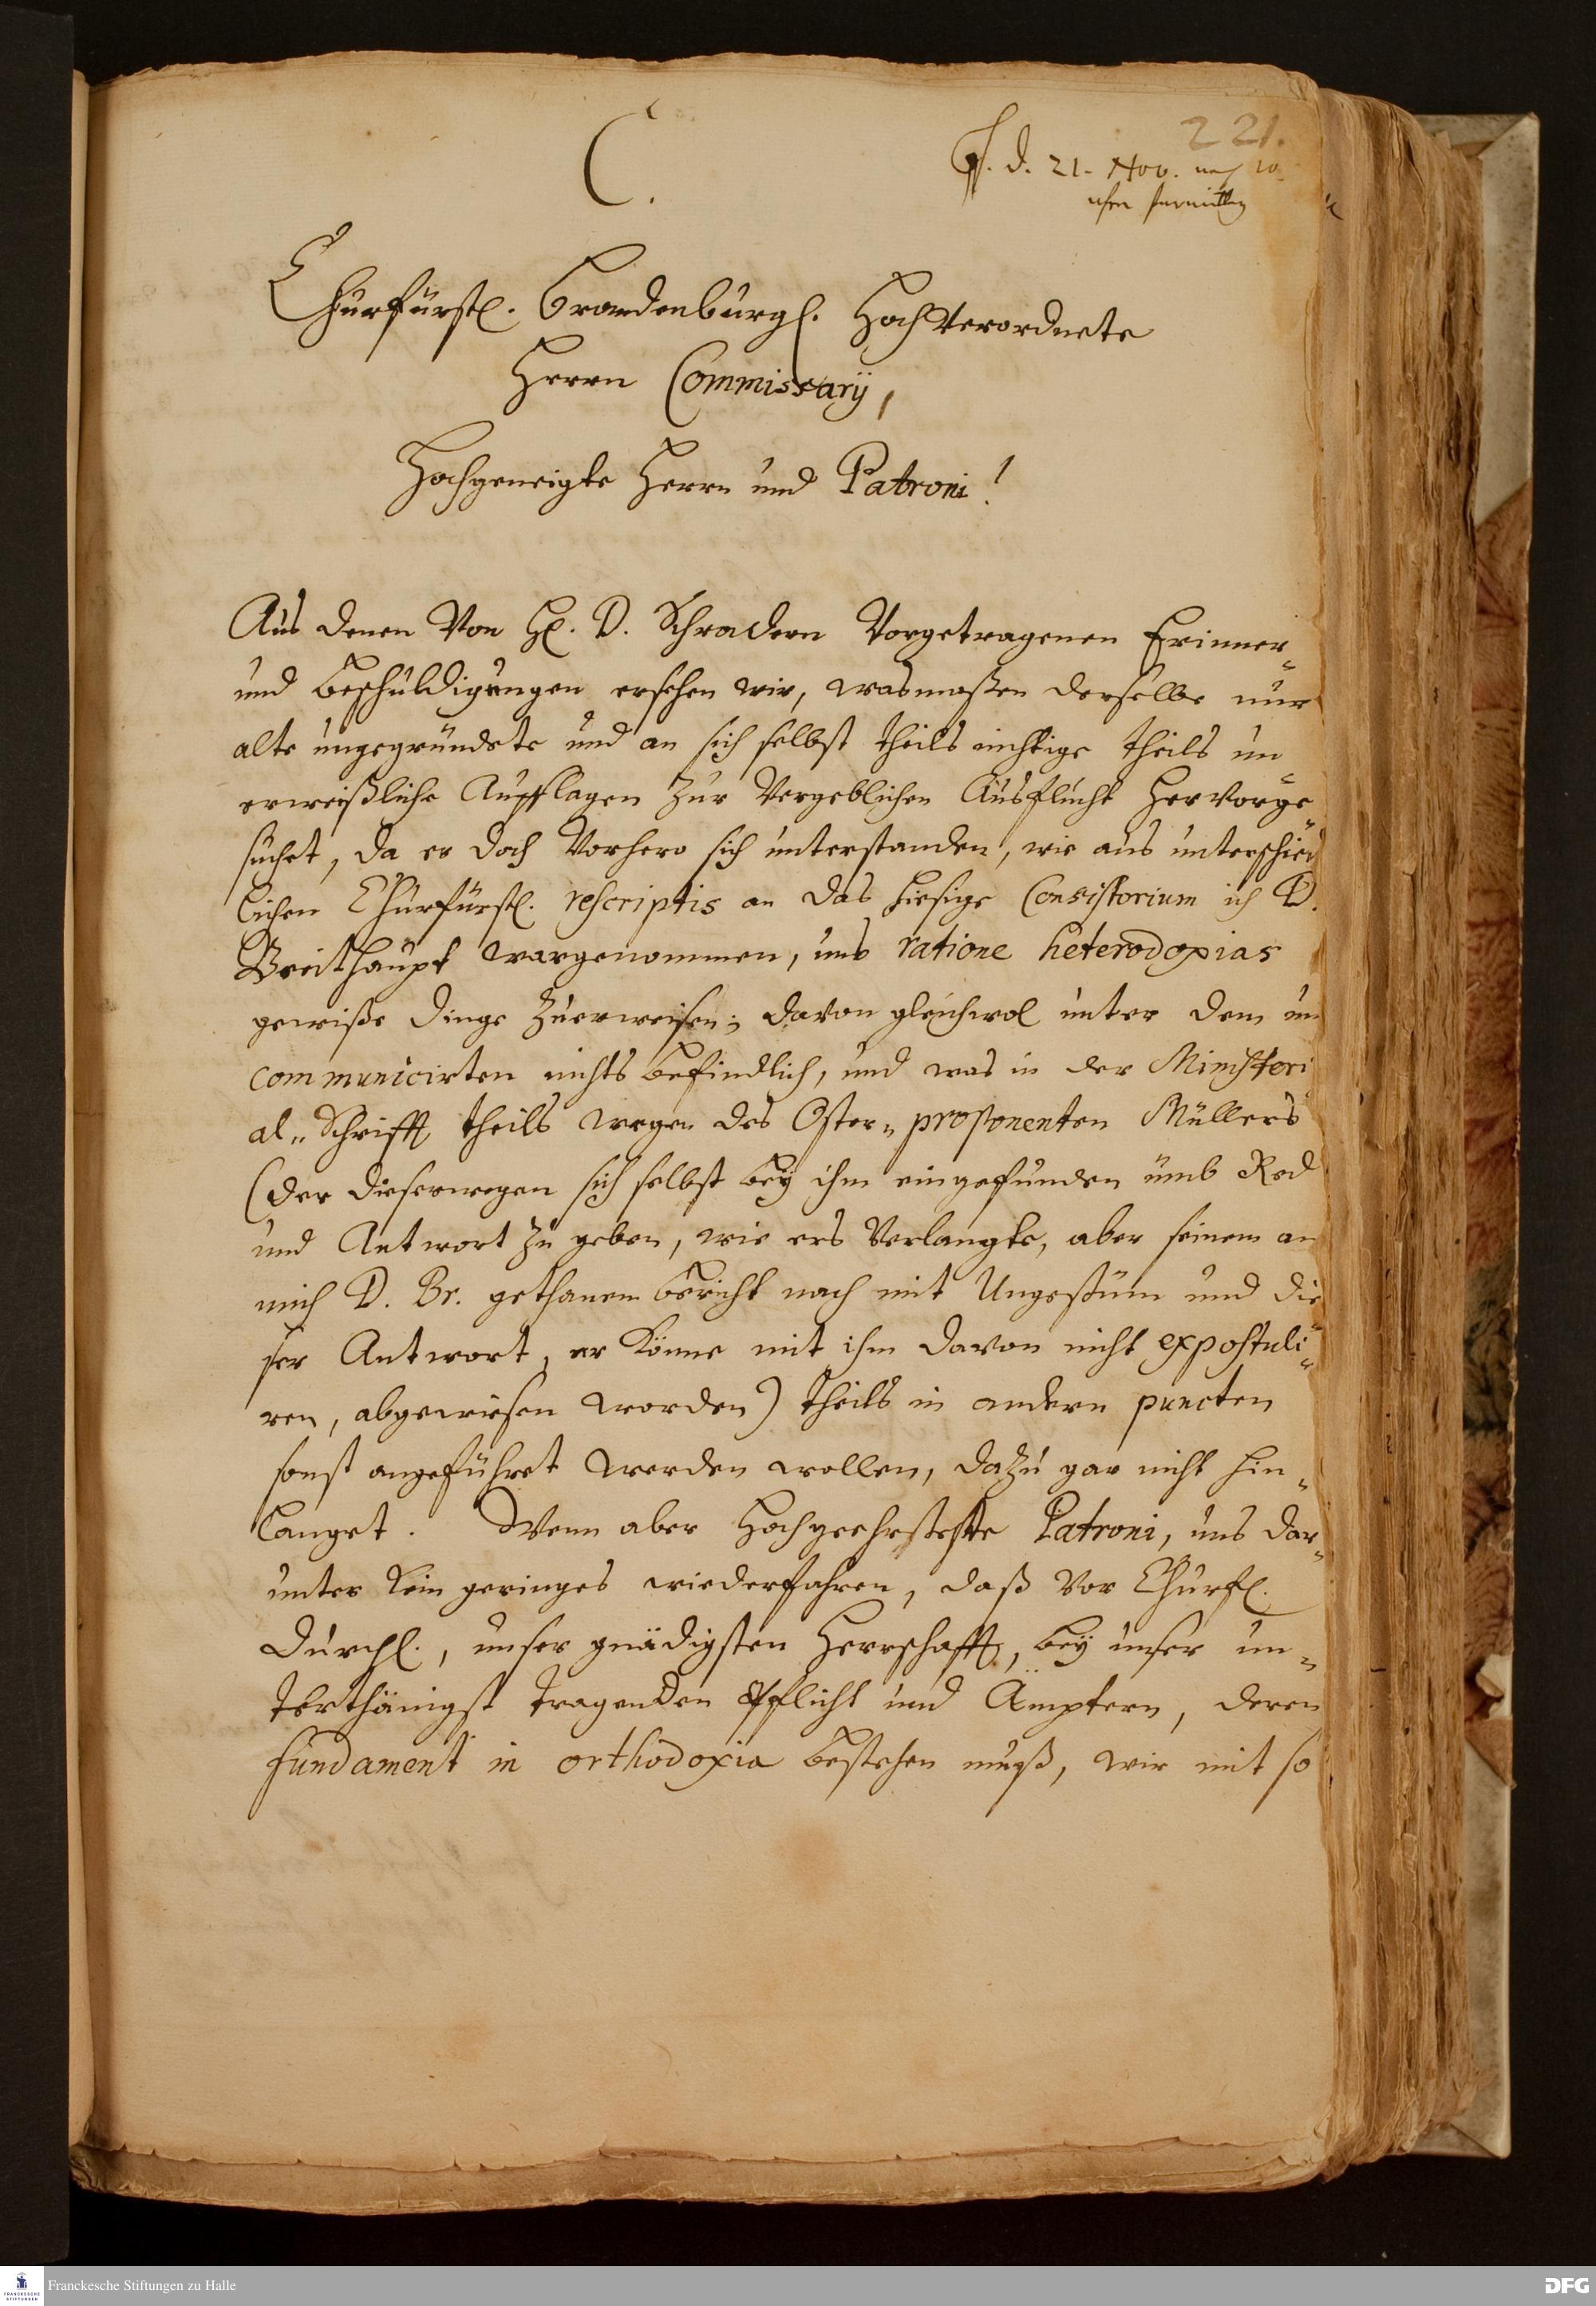 221.
C.
d. 21. Nov. nach 10
uhr
Churfürstl. Brandenburgl. HochVerordnete
Herrn Commissarÿ,
Hochgeneigte Herrn und Patroni!
Aus denen Von H. D. Schradern Vorgetragenen Erinner-
und Beschuldigungen ersehen wir, wasmaßen derselbe nur
alte ungegründete und an sich selbst theils nichtige theils un-
erweißliche Aufflagen zur Vergeblichen Ausflucht Hervorge-
suchet, da er doch Vorhero sich unterstanden, wie aus unterschied
lichen Churfürstl. rescriptis an das hiesige Consistorium ich D.
Breithaupt wargenommen, uns ratione heterodoxias
gewiße dinge zuerweisen; davon gleichwol unter dem un
communicirten nichts befindlich, und was in der Ministeri
al-Schrifft theils wegen des Oster-proponenten Müllers
(der dieserwegen sich selbst beÿ ihm eingefunden ümb Red
und Antwort zu geben, wie ers Verlangte, aber seinem an
mich D. Br. gethanem bericht nach mit Ungestüm und die-
ser Antwort, er könne mit ihm davon nicht expostuli-
ren, abgewiesen worden) theils in andern puncten
sonst angeführet werden wollen, dazu gar nicht hin-
langet. Wenn aber Hochgeehrsteste Patroni, uns dar-
unter kein geringes wiederfahren, daß Vor Churfl.
Durchl., unser gnädigsten Herrschafft, beÿ unser un-
terthänigst tragenden Pflicht und Ämptern, deren
fundament in orthodoxia bestehen muß, wir mit so
Franckesche Stiftungen zu Halle
DFG